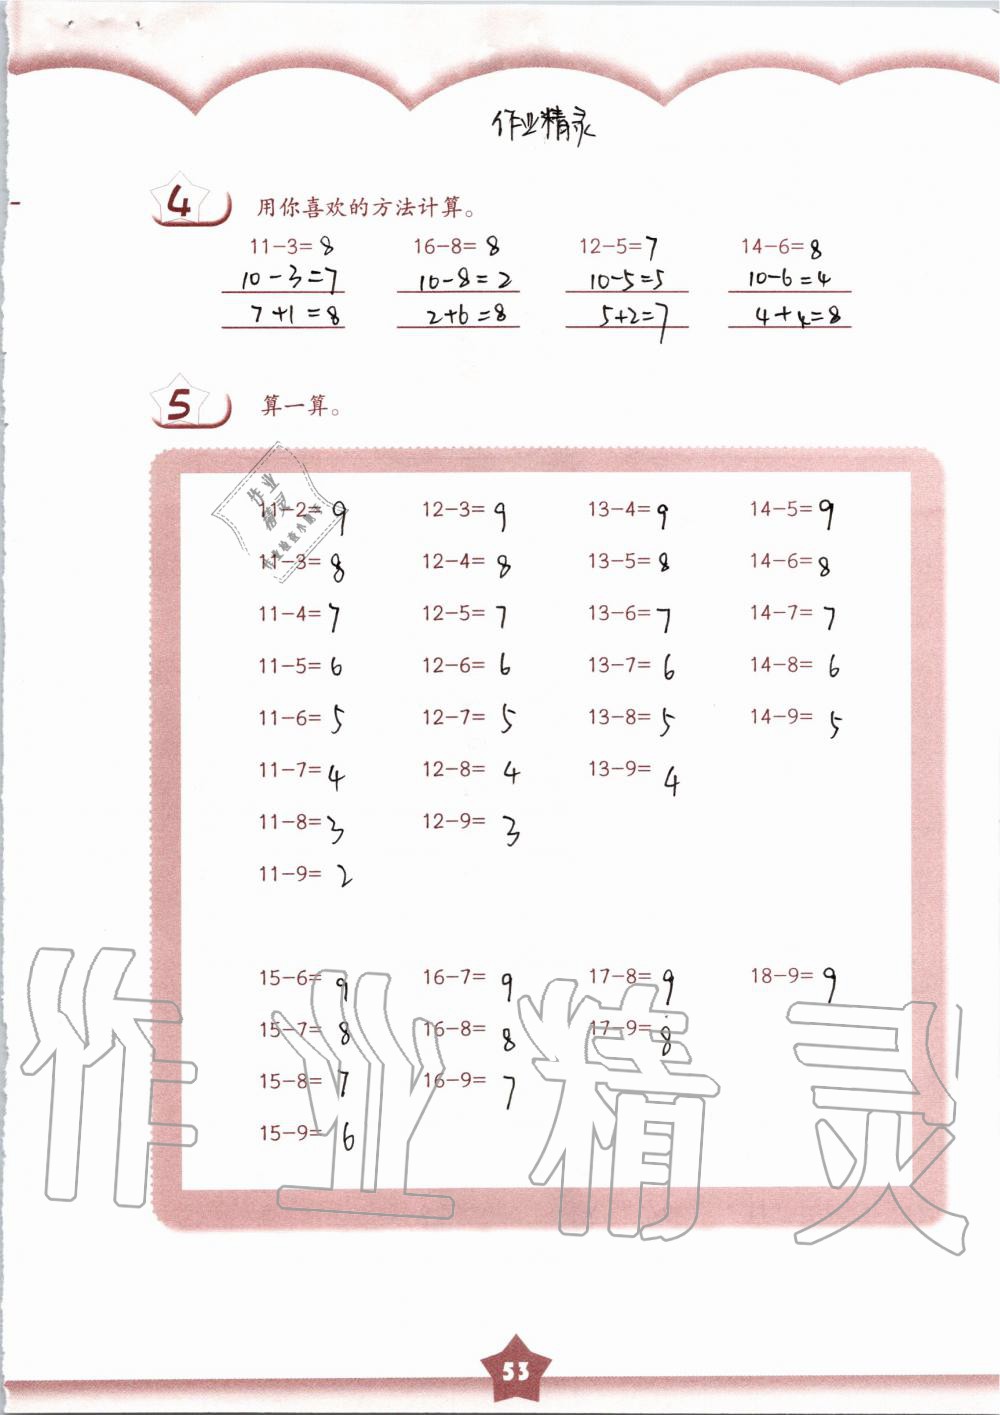 作业精灵
4 用你喜欢的方法计算。
11-3=8 16-8=8 12-5=7 14-6=8
10-3=7 10-8=2 10-5=5 10-6=4
7+1=8 2+6=8 5+2=7 4+4=8
5 算一算。
作业
精灵
11-2=9 12-3=9 13-4=9 14-5=9
11-3=8 12-4=8 13-5=8 14-6=8
11-4=7 12-5=7 13-6=7 14-7=7
11-5=6 12-6=6 13-7=6 14-8=6
11-6=5 12-7=5 13-8=5 14-9=5
11-7=4 12-8=4 13-9=4
11-8=3 12-9=3
11-9=2
15-6=9 16-7=9 17-8=9 18-9=9
15-7=8 16-8=8 17-9=8
15-8=7 16-9=7
15-9=6
作业精灵
53